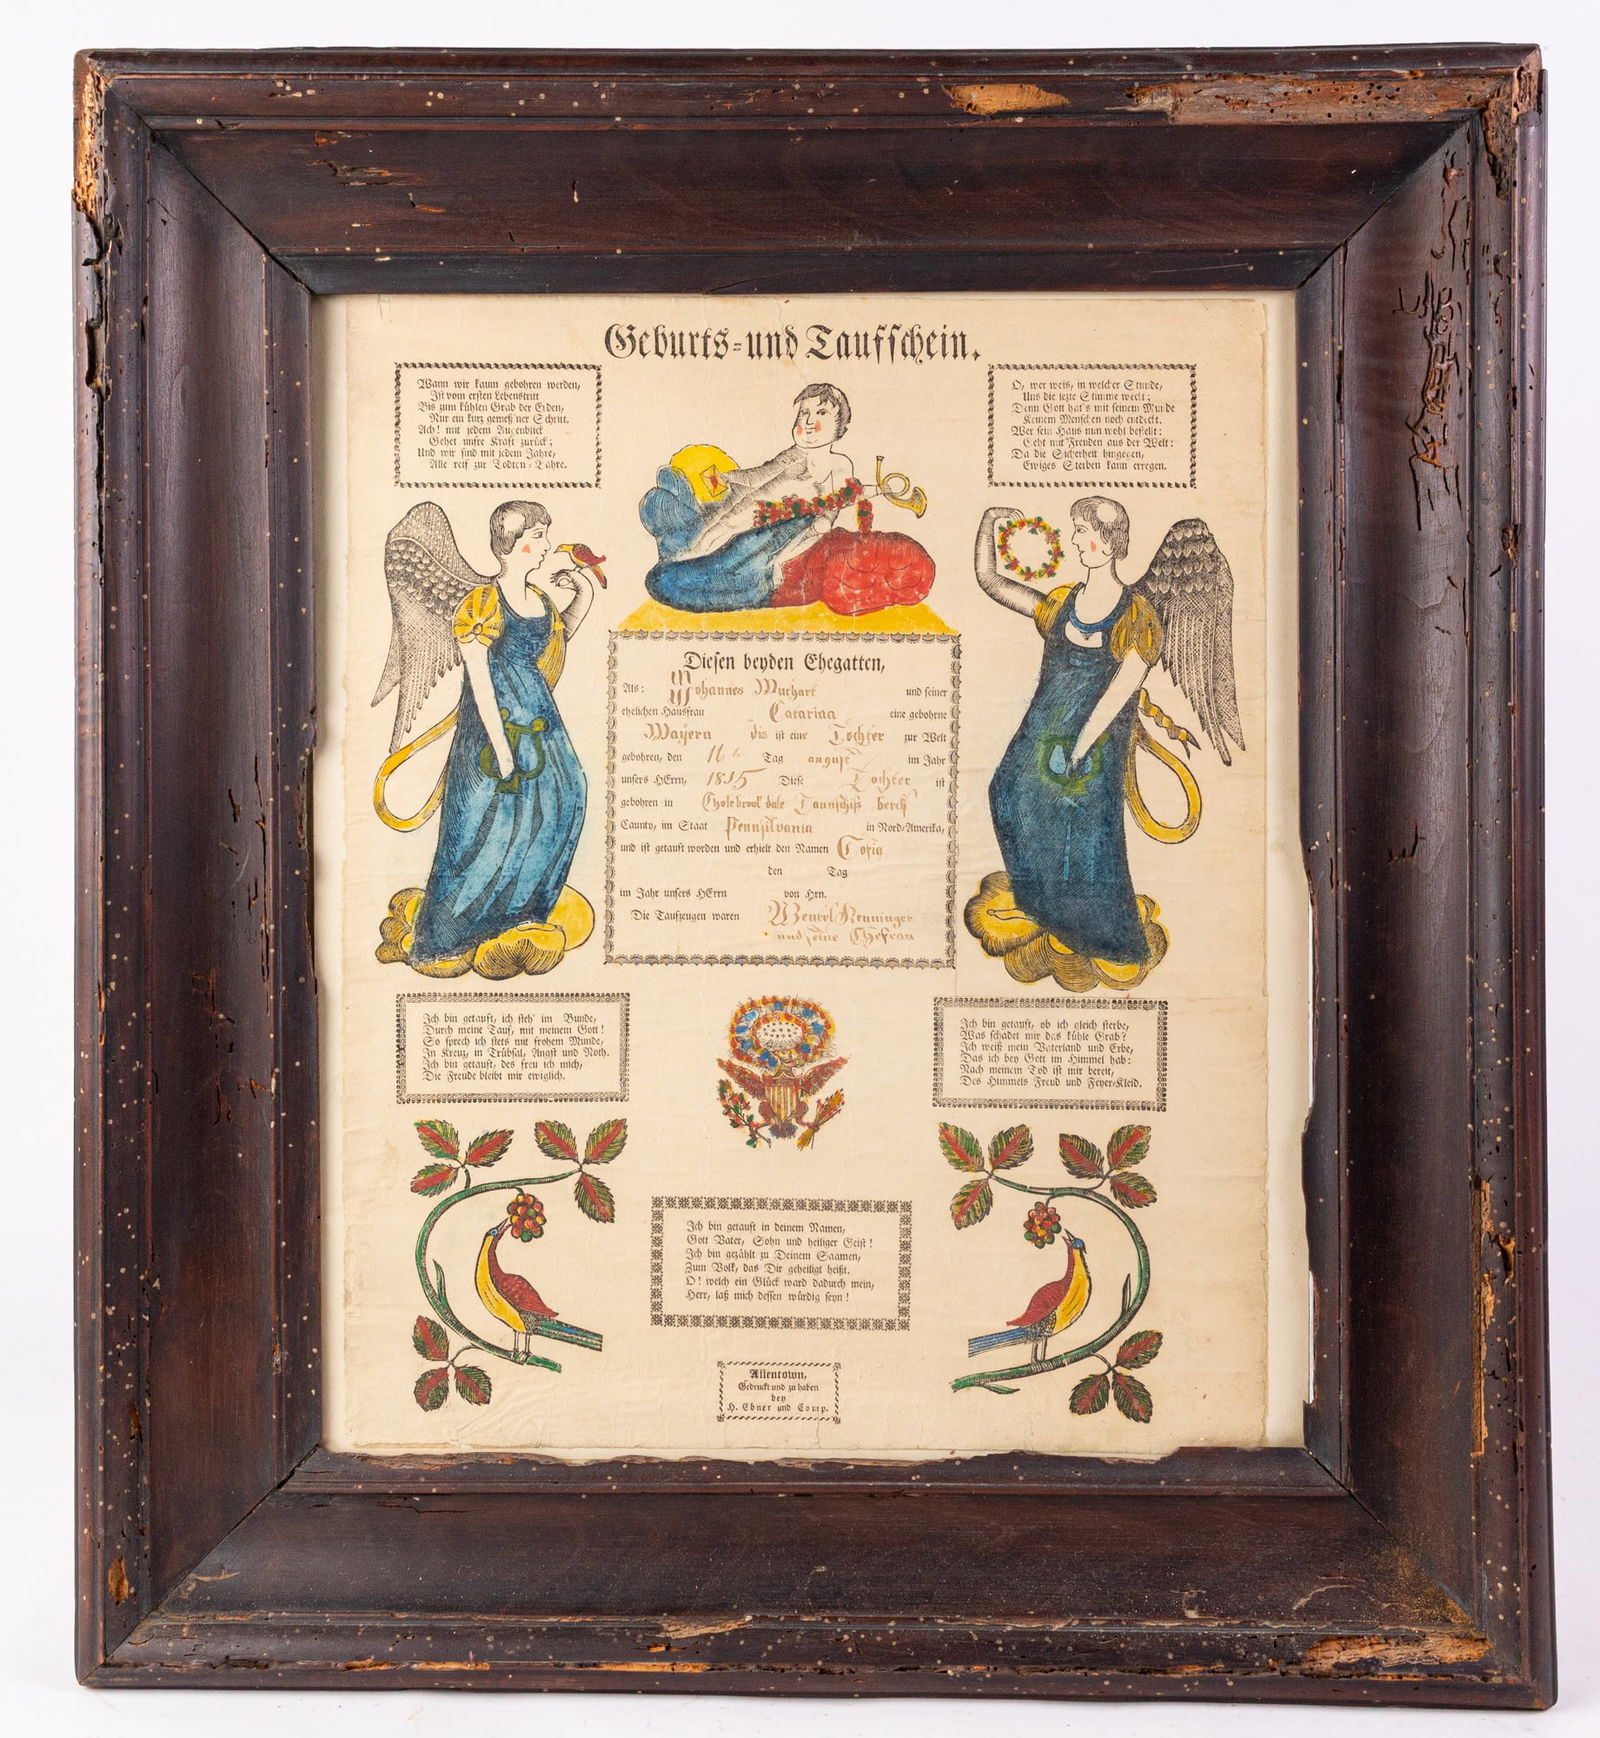 Geburts- und Taufschein.
Wann wir kaum gebohren werden,
Ist vom ersten Lebenstritt
Bis zum kühlen Grab der Erden,
Nur ein kurz gemeß'ner Schritt.
Ach! mit jedem Augenblick
Gehet unsre Kraft zurück;
Und wir sind mit jedem Jahre,
Alle reif zur Todten-Bahre.
O, wer weis, in welcher Stunde,
Uns die lezte Stimme weckt;
Denn Gott hat's mit seinem Munde
Keinem Menschen noch entdeckt.
Wer sein Haus nun wohl bestellt:
Geht mit Freuden aus der Welt:
Da die Sicherheit hingegen,
Ewiges Sterben kann erregen.
Diesen beyden Ehegatten,
Als: Johannes Muthart und seiner
ehelichen Hausfrau Catarina eine gebohrne
Mayern dis ist eine Tochter zur Welt
gebohren, den 16 Tag august im Jahr
unsers HErrn, 1815 Diese Tochter ist
gebohren in Cholebrookdale Taunschip berck
Caunty, im Staat Pennsilvania in Nord-Amerika,
und ist getauft worden und erhielt den Namen
den Tag
im Jahr unsers HErrn von Hrn.
Die Taufzeugen waren Wentel Neuninger
und seine Ehefrau
Ich bin getauft, ich steh' im Bunde,
Durch meine Tauf, mit meinem Gott!
So sprech ich stets mit frohem Munde,
In Kreuz, in Trübsal, Angst und Noth.
Ich bin getauft, des freu ich mich,
Die Freude bleibt mir ewiglich.
Ich bin getauft, ob ich gleich sterbe,
Was schadet mir das kühle Grab?
Ich weiß mein Vaterland und Erbe,
Das ich bey Gott im Himmel hab:
Nach meinem Tod ist mir bereit,
Des Himmels Freud und Feyer-Kleid.
Ich bin getauft in deinem Namen,
Gott Vater, Sohn und heiliger Geist!
Ich bin gezählt zu Deinem Saamen,
Zum Volk, das Dir geheiligt heißt.
O! welch ein Glück ward dadurch mein,
Herr, laß mich dessen würdig seyn!
Allentown,
Gedruckt und zu haben
bey
H. Ebner und Comp.